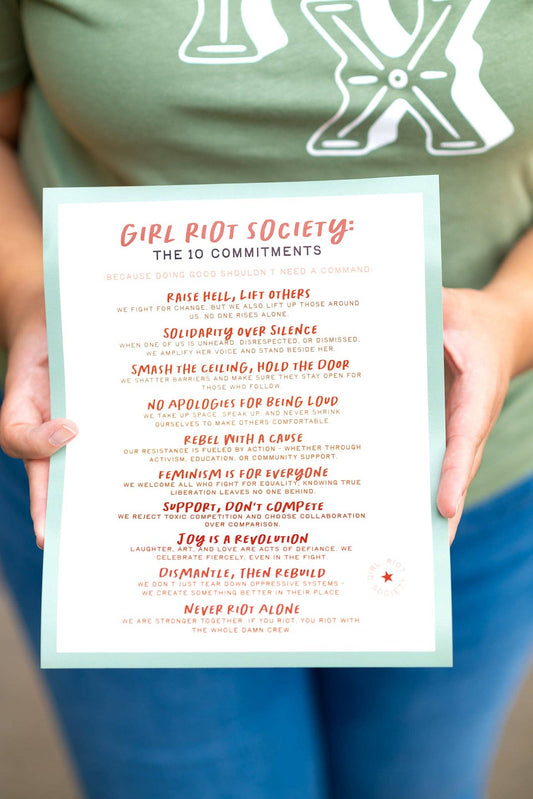 GIRL RIOT SOCIETY:
THE 10 COMMITMENTS
(BECAUSE DOING GOOD SHOULDN'T NEED A COMMAND)
RAISE HELL, LIFT OTHERS
WE FIGHT FOR CHANGE, BUT WE ALSO LIFT UP THOSE AROUND
US. NO ONE RISES ALONE.
SOLIDARITY OVER SILENCE
WHEN ONE OF US IS UNHEARD, DISRESPECTED, OR DISMISSED,
WE AMPLIFY HER VOICE AND STAND BESIDE HER.
SMASH THE CEILING, HOLD THE DOOR
WE SHATTER BARRIERS AND MAKE SURE THEY STAY OPEN FOR
THOSE WHO FOLLOW.
NO APOLOGIES FOR BEING LOUD
WE TAKE UP SPACE, SPEAK UP, AND NEVER SHRINK
OURSELVES TO MAKE OTHERS COMFORTABLE.
REBEL WITH A CAUSE
OUR RESISTANCE IS FUELED BY ACTION - WHETHER THROUGH
ACTIVISM, EDUCATION, OR COMMUNITY SUPPORT.
FEMINISM IS FOR EVERYONE
WE WELCOME ALL WHO FIGHT FOR EQUALITY, KNOWING TRUE
LIBERATION LEAVES NO ONE BEHIND.
SUPPORT, DON'T COMPETE
WE REJECT TOXIC COMPETITION AND CHOOSE COLLABORATION
OVER COMPARISON.
JOY IS A REVOLUTION
LAUGHTER, ART, AND LOVE ARE ACTS OF DEFIANCE. WE
CELEBRATE FIERCELY, EVEN IN THE FIGHT.
DISMANTLE, THEN REBUILD
WE DON'T JUST TEAR DOWN OPPRESSIVE SYSTEMS -
WE CREATE SOMETHING BETTER IN THEIR PLACE.
GIRL RIOT
SOCIETY
NEVER RIOT ALONE
WE ARE STRONGER TOGETHER. IF YOU RIOT, YOU RIOT WITH
THE WHOLE DAMN CREW.